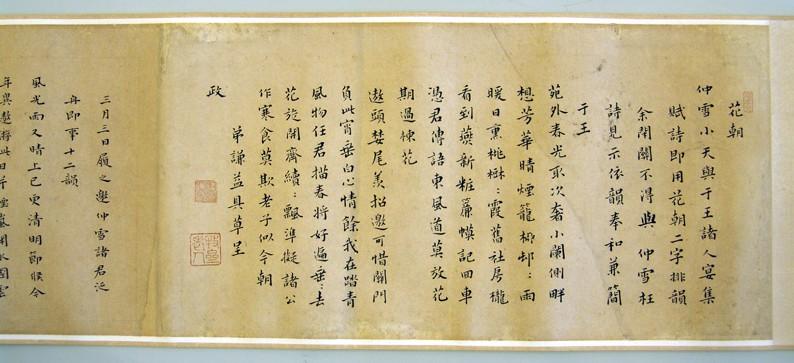 花朝
仲雪小天與于王諸人宴集
賦詩即用花朝二字排韻
余閉關不得與 仲雪枉
詩見示依韻奉和兼簡
于王
苑外春光取次奢小闌側畔
想芳華晴煙籠柳邨〻雨
暖日熏桃樹〻霞舊社房櫳
看到燕新粧簾幙記回車
憑君傳語東風道莫放花
期過楝花
遨頭婪尾羨招邀可惜關門
負此宵垂白心情餘我在踏青
風物任君描春將好遍垂〻去
花旋開齊續〻飄準擬諸公
作寒食莫欺老子似今朝
弟謙益具草呈
政
三月三日履之邀仲雪諸君泛
舟即事十二韻
風光雨又晴上巳更清明節候今
年異遨游此日并